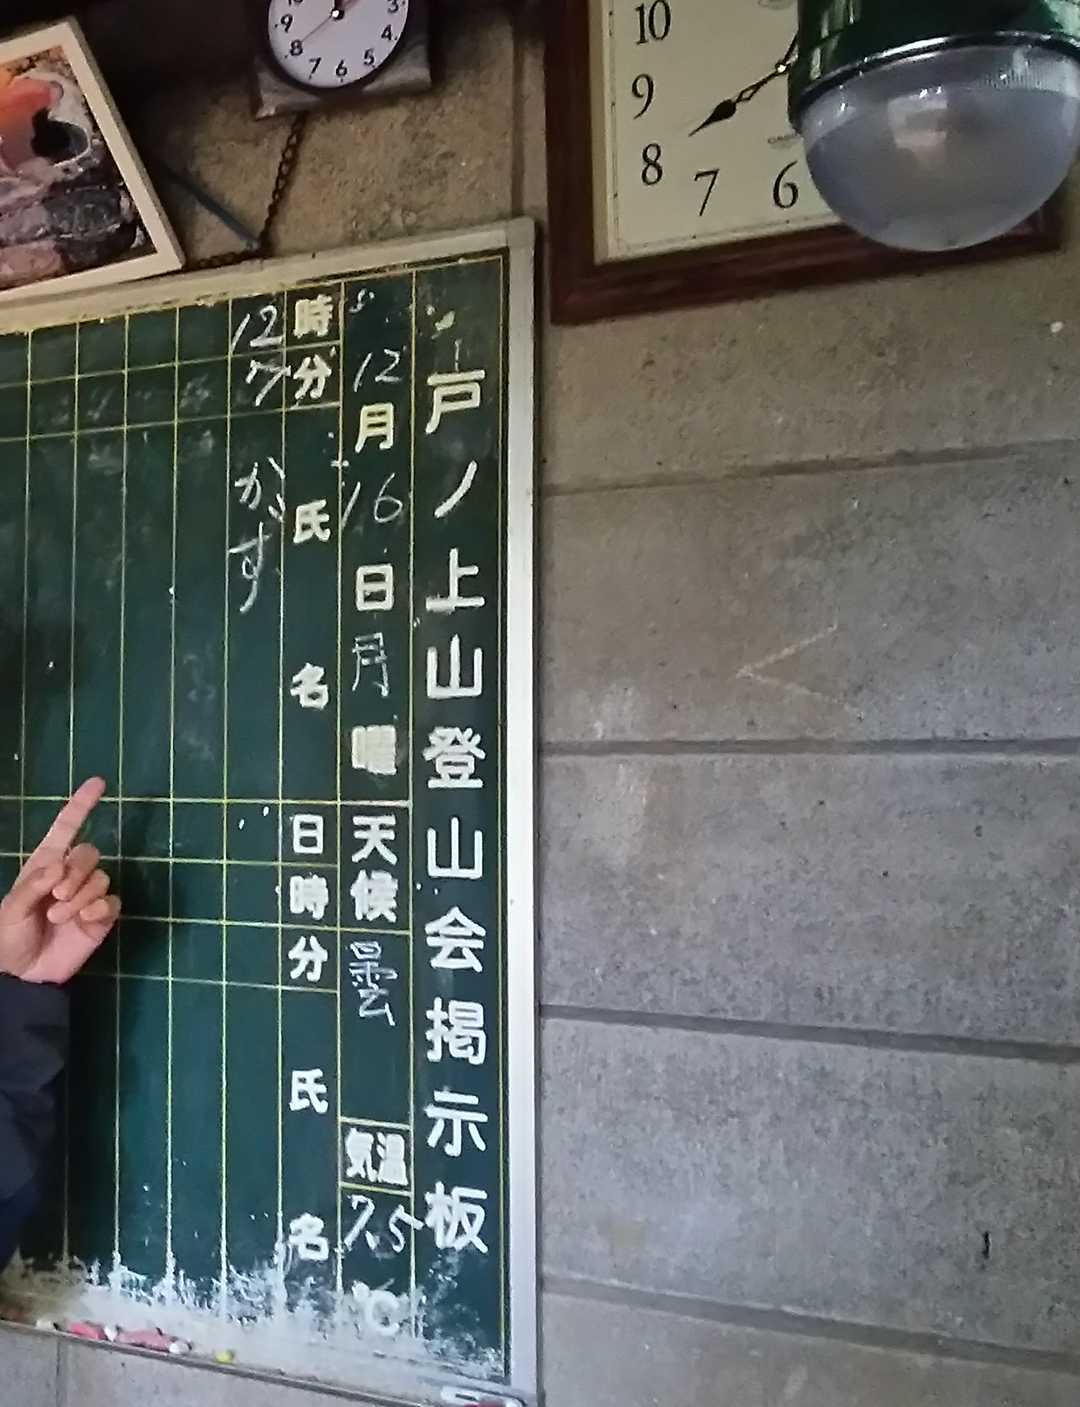 戸ノ上山登山会掲示板
12月16日月曜 天候 曇 気温 7.5℃
時分 氏名 日時分 氏名
12 7 かず
3
4
5
6
7
8
9
10
9
8
7
6